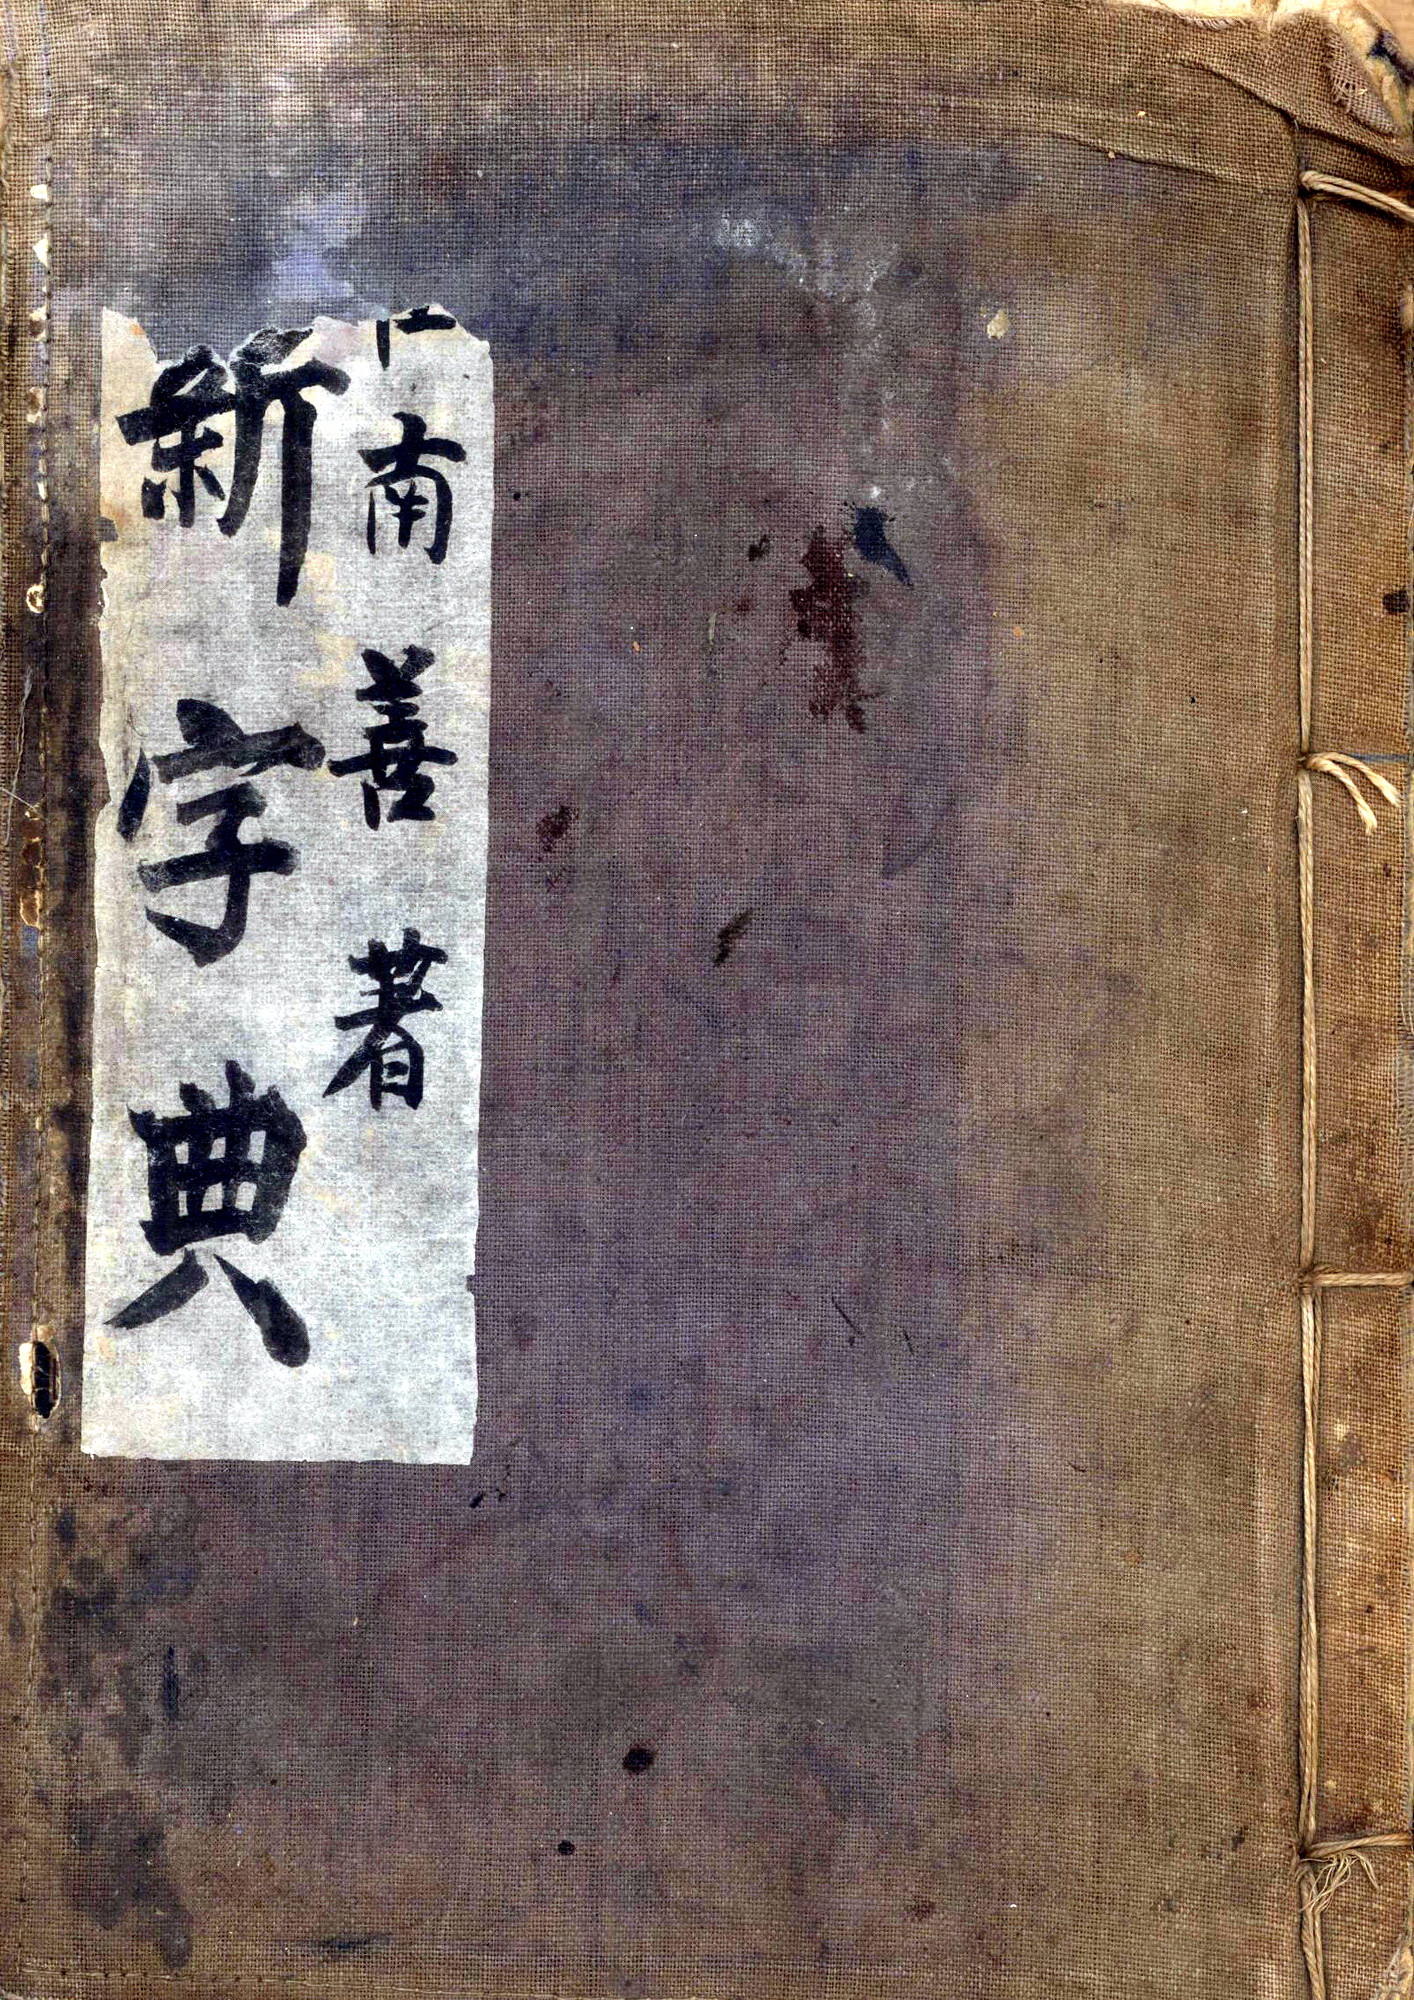 南善著
新字典